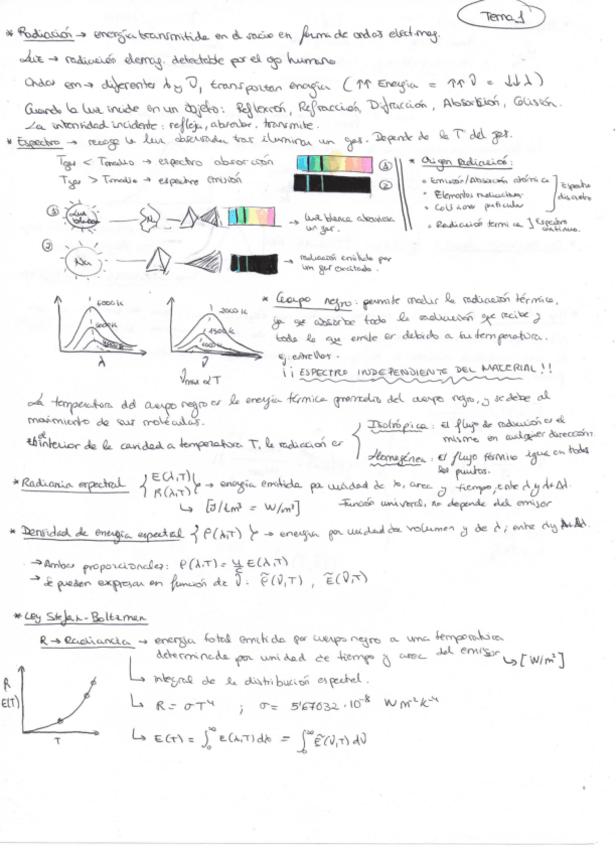 Tema 1
* Radiación → energía transmitida en el vacío en forma de ondas electmag.
Luz → radiación elemag. detectable por el ojo humano
Ondas em → diferentes λ y ν, transportan energía ( ↑↑ Energía = ↑↑ ν = ↓↓ λ )
Cuando la luz incide en un objeto: Reflexión, Refracción, Difracción, Absorción, Colisión.
La intensidad incidente: refleja, absorbe, transmite.
* Espectro → recoge la luz observada tras iluminar un gas. Depende de la T del gas.
Tgas < Tmedio → espectro absorción
Tgas > Tmedio → espectro emisión
①
②
* Origen Radiación:
• Emisión/Absorción atómica
• Elementos radiactivos
• Colisiones particular
] Espectro discreto
• Radiación térmica ] Espectro continuo.
① Luz blanca
→ luz blanca atraviesa un gas.
② Na
→ radiación emitida por un gas excitado.
6000K
λ
2000K
1500K
ν
νmax αT
* Cuerpo negro: permite medir la radiación térmica,
ya que absorbe toda la radiación que recibe y
toda la que emite es debido a su temperatura.
ej. estrellas.
¡¡ ESPECTRO INDEPENDIENTE DEL MATERIAL !!
La temperatura del cuerpo negro es la energía térmica promedio del cuerpo negro, y se debe al
movimiento de sus moléculas.
El interior de la cavidad a temperatura T, la radiación es
Isotrópica: El flujo de radiación es el
mismo en cualquier dirección.
Homogénea: El flujo térmico igual en todos
los puntos.
* Radiancia espectral { E(λ,T) R(λ,T) } → energía emitida por unidad de λ, area y tiempo, entre λ y λ+Δλ.
↳ [J/Lm³ = W/m³] Función universal, no depende del emisor
* Densidad de energía espectral { ρ(λ,T) } → energía por unidad de volumen y de λ; entre λ y λ+Δλ.
→ Ambas proporcionales: ρ(λ,T) = 4/c E(λ,T)
→ Se pueden expresar en función de ν: ρ̃(ν,T) , Ẽ(ν,T)
* Ley Stefan-Boltzman
R → Radiancia → energía total emitida por cuerpo negro a una temperatura
determinada por unidad de tiempo y area del emisor ↳ [W/m²]
↳ integral de la distribución espectral.
↳ R = σT⁴ ; σ = 5'67032·10⁻⁸ W m⁻² K⁻⁴
↳ E(T) = ∫₀^∞ E(λ,T) dλ = ∫₀^∞ Ẽ(ν,T) dν
R
E(T)
T